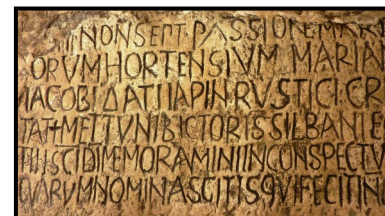 II NON SEPT PASSIONE MAR
ORVM HORTENSIVM MARIAN
IACOBI DATI IAPIN RVSTICI CR
TAT+ METTVNI BICTORIS SILBANI E
TII SCI DI MEMORAMINI IN CONSPECTV
QVORVM NOMINA SCITIS QVI FECIT IN